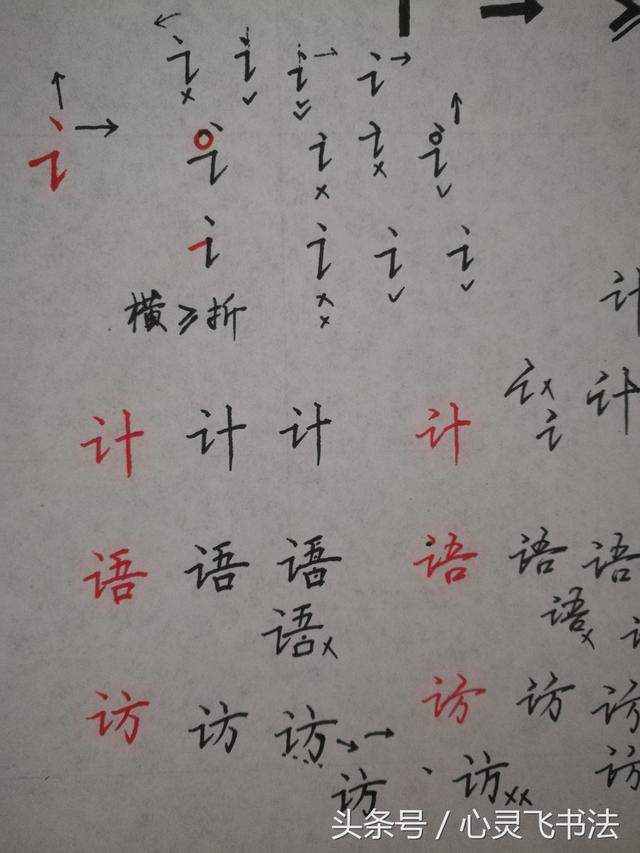 讠 讠 讠 讠
讠 讠 讠 讠 讠
讠 讠 讠 讠
横≥折
计
讠
计 计 计 计 讠 计
语 语 语 语 语 语
语 语
访 访 访 访 访 访
访 访 访
头条号 / 心灵飞书法